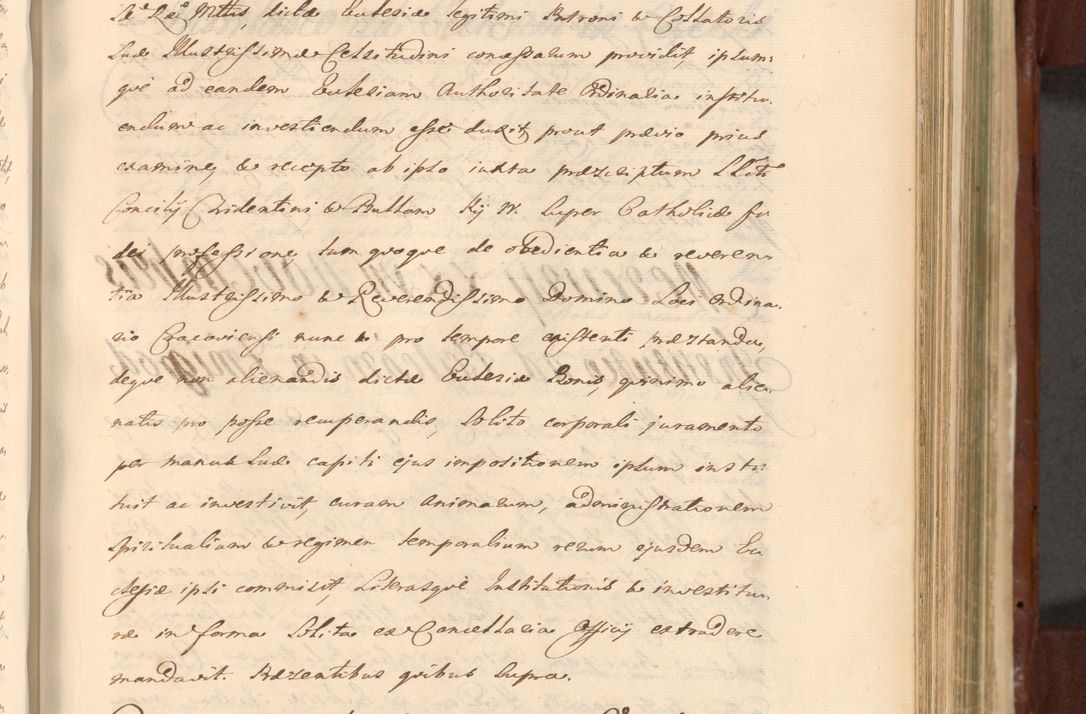 Mttis, dictæ Ecclesiæ legitimi Patroni & Collatoris
suæ Illustrissimæ Celsitudini concessarum providit, ipsum-
què ad eandem Ecclesiam Authoritate Ordinaria institu-
endum ac investiendum esse duxit, prout prævio prius
examine, & recepto ab ipso iuxta præscriptum SSti
Concilij Tridentini & Bullam Pij IV. super Catholicæ fi-
dei professione, tum quoque de obedientia & reveren-
tia Illustrissimo & Reverendissimo Domino Loci Ordina-
rio Cracoviensi nunc & pro tempore existenti præstanda,
deque non alienandis dictæ Ecclesiæ Bonis, quinimo alie-
natis pro posse recuperandis, solito corporali juramento
per manus suæ capiti ejus impositionem ipsum insti-
tuit ac investivit, curam animarum, administrationem
spiritualium & regimen temporalium rerum ejusdem Ec-
clesiæ ipsi commisit, Literasquè Institutionis & investitu-
ræ in forma solita ex Cancellaria Officij extradere
mandavit. Præsentibus quibus supra.